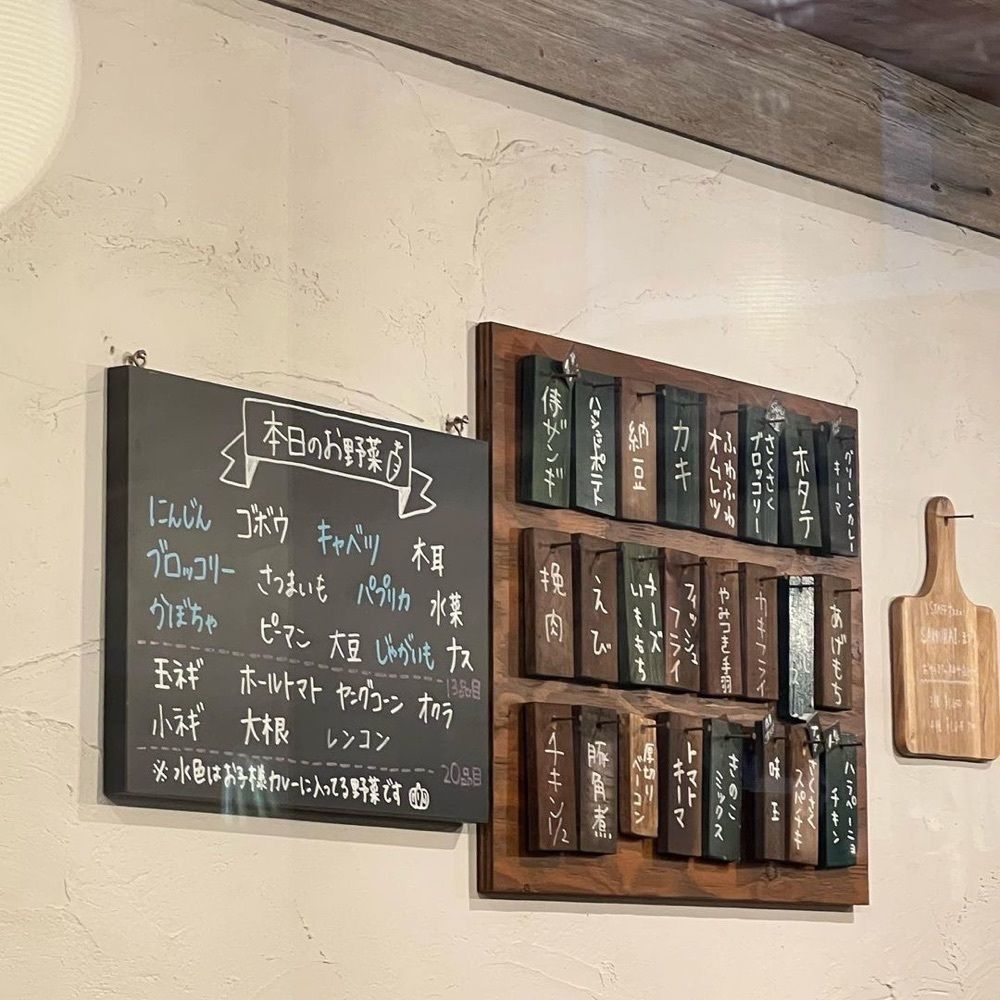 本日のお野菜
にんじん ゴボウ キャベツ 木耳
ブロッコリー さつまいも パプリカ 水菜
かぼちゃ ピーマン 大豆 じゃがいも ナス
13品目
玉ネギ ホールトマト ヤングコーン オクラ
小ネギ 大根 レンコン
20品目
※水色はお子様カレーに入ってる野菜です
侍ザンギ
ハッシュドポテト
納豆
カキ
ふわふわ
オムレツ
さくさく
ブロッコリー
ホタテ
グリーンカレー
キーマ
挽肉
えび
チーズ
いももち
フィッシュ
フライ
やみつき手羽
カキフライ
あげもち
チキン1/2
豚角煮
厚切り
ベーコン
トマト
キーマ
きのこ
ミックス
味玉
さくさく
スパチキ
ハラペーニョ
チキン